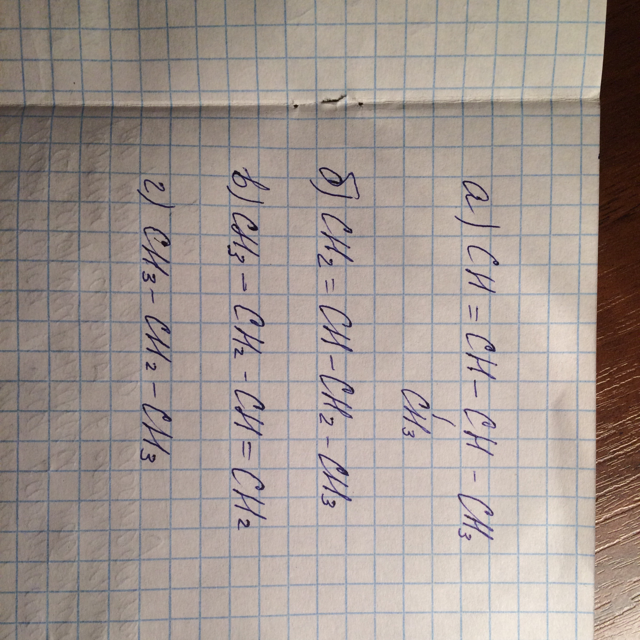 а) CH = CH - CH - CH₃
CH₃
б) CH₂ = CH - CH₂ - CH₃
в) CH₃ - CH₂ - CH = CH₂
г) CH₃ - CH₂ - CH₃